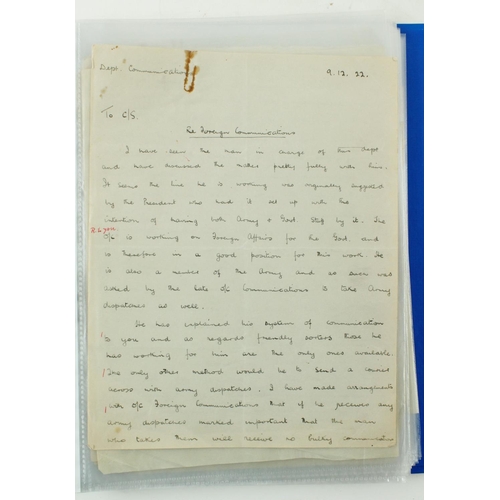 Dept. Communications
9.12.22.
To C/S.
Re Foreign Communications
I have seen the man in charge of this Dept
and have discussed the matter pretty fully with him.
It seems the line he is working was originally supplied
by the President who had it set up with the
intention of having both Army & Govt Stuff by it. The
O/C is working on Foreign Affairs for the Govt. and
is therefore in a good position for this work. He
is also a member of the Army and as such was
asked by the late O/C Communications to take Army
dispatches as well.
He has explained his system of communication
to you and as regards friendly sailors those he
has working for him are the only ones available.
The only other method would be to send a courier
across with army dispatches. I have made arrangements
with O/C Foreign Communications that if he receives any
army dispatches marked important that the man
who takes them will receive no bulky communications